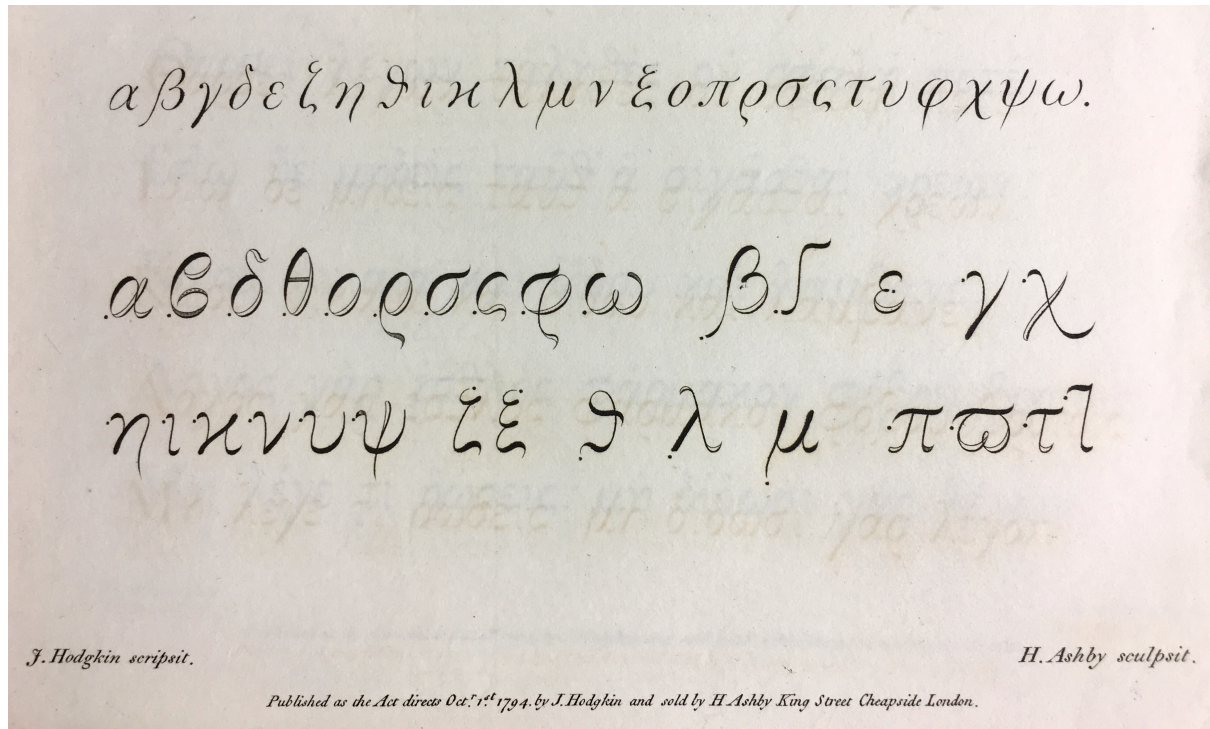 α β γ δ ε ζ η ϑ ι ϰ λ μ ν ξ ο π ρ σ ς τ υ φ χ ψ ω.
α ϐ δ θ ο ρ σ ς φ ω β ſ ε γ χ
η ι ϰ ν υ ψ ζ ξ ϑ λ μ π ϖ τ ⁊
J. Hodgkin scripsit. H. Ashby sculpsit.
Published as the Act directs Oct.r 1.st 1794. by J. Hodgkin and sold by H Ashby King Street Cheapside London.